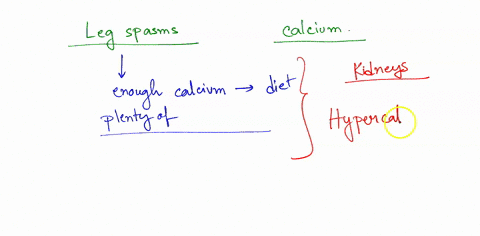 Leg spasms
calcium.
enough calcium → diet
plenty of
Kidneys
Hypercal